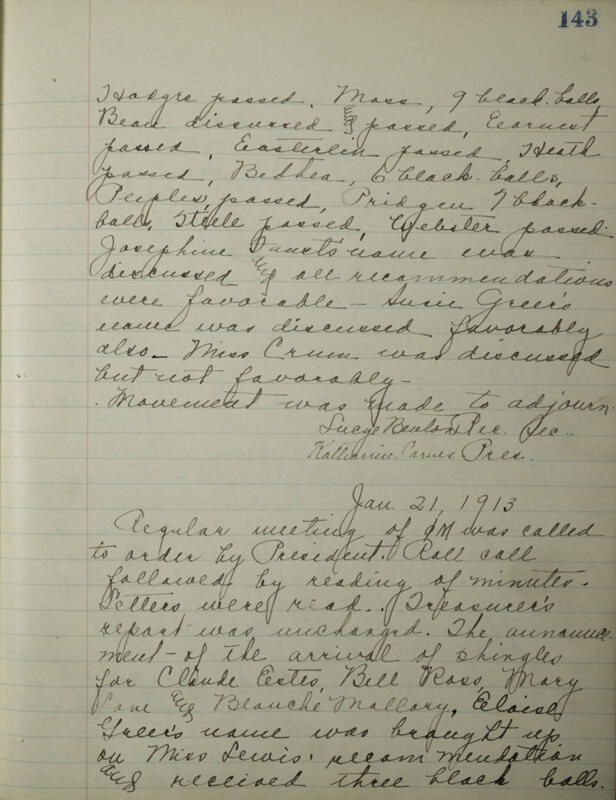 143
Hodges passed, Moss, 9 black-balls,
Bean discussed and passed, Earnest
passed, Easterlin passed, Heath
passed, Bethea, 6 black-balls,
Peeples, passed, Pridgen 7 black-
balls, Steele passed, Webster passed.
Josephine Faust's name was
discussed and all recommendations
were favorable - Susie Greer's
name was discussed favorably
also - Miss Crum was discussed
but not favorably -
Movement was made to adjourn.
Lucye Benton Rec. Sec..
Katharine Carnes Pres.
Jan. 21, 1913
Regular meeting of ΦM was called
to order by President. Roll call
followed by reading of minutes.
Letters were read. Treasurer's
report was unchanged. The announce-
ment - of the arrival of shingles
for Claude Estes, Bell Ross, Mary
Lane and Blanche Mallary, Eloise
Greer's name was brought up
on Miss Lewis' recommendation
and received three black balls.